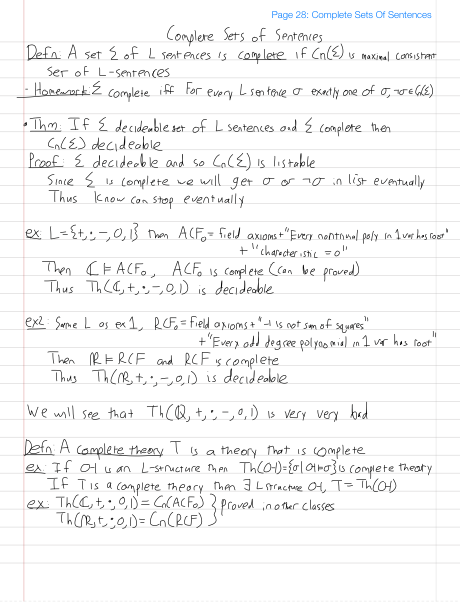 Page 28: Complete Sets Of Sentences
Complete Sets of Sentences
Defn: A set Σ of L sentences is complete if Cn(Σ) is maximal consistent
set of L-sentences
- Homework Σ complete iff For every L sentence σ exactly one of σ, ¬σ ∈ Cn(Σ)
• Thm: If Σ decideable set of L sentences and Σ complete then
Cn(Σ) decideable
Proof: Σ decideable and so Cn(Σ) is listable
Since Σ is complete we will get σ or ¬σ in list eventually
Thus know can stop eventually
ex: L={+,·,-,0,1} then ACF₀ = field axioms + "Every nontrivial poly in 1 var has root"
+ "characteristic = 0"
Then ℂ ⊨ ACF₀, ACF₀ is complete (can be proved)
Thus Th(ℂ,+,·,-,0,1) is decideable
ex2: Same L as ex1, RCF₀ = Field axioms + "-1 is not sum of squares"
+ "Every odd degree polynomial in 1 var has root"
Then ℝ ⊨ RCF and RCF is complete
Thus Th(ℝ,+,·,-,0,1) is decideable
We will see that Th(ℚ,+,·,-,0,1) is very very bad
Defn: A complete theory T is a theory that is complete
ex: If 𝒜 is an L-structure then Th(𝒜)={σ|𝒜⊨σ} is complete theory
If T is a complete theory then ∃ L structure 𝒜, T = Th(𝒜)
ex: Th(ℂ,+,·,0,1) = Cn(ACF₀) } Proved in other classes
Th(ℝ,+,·,0,1) = Cn(RCF)